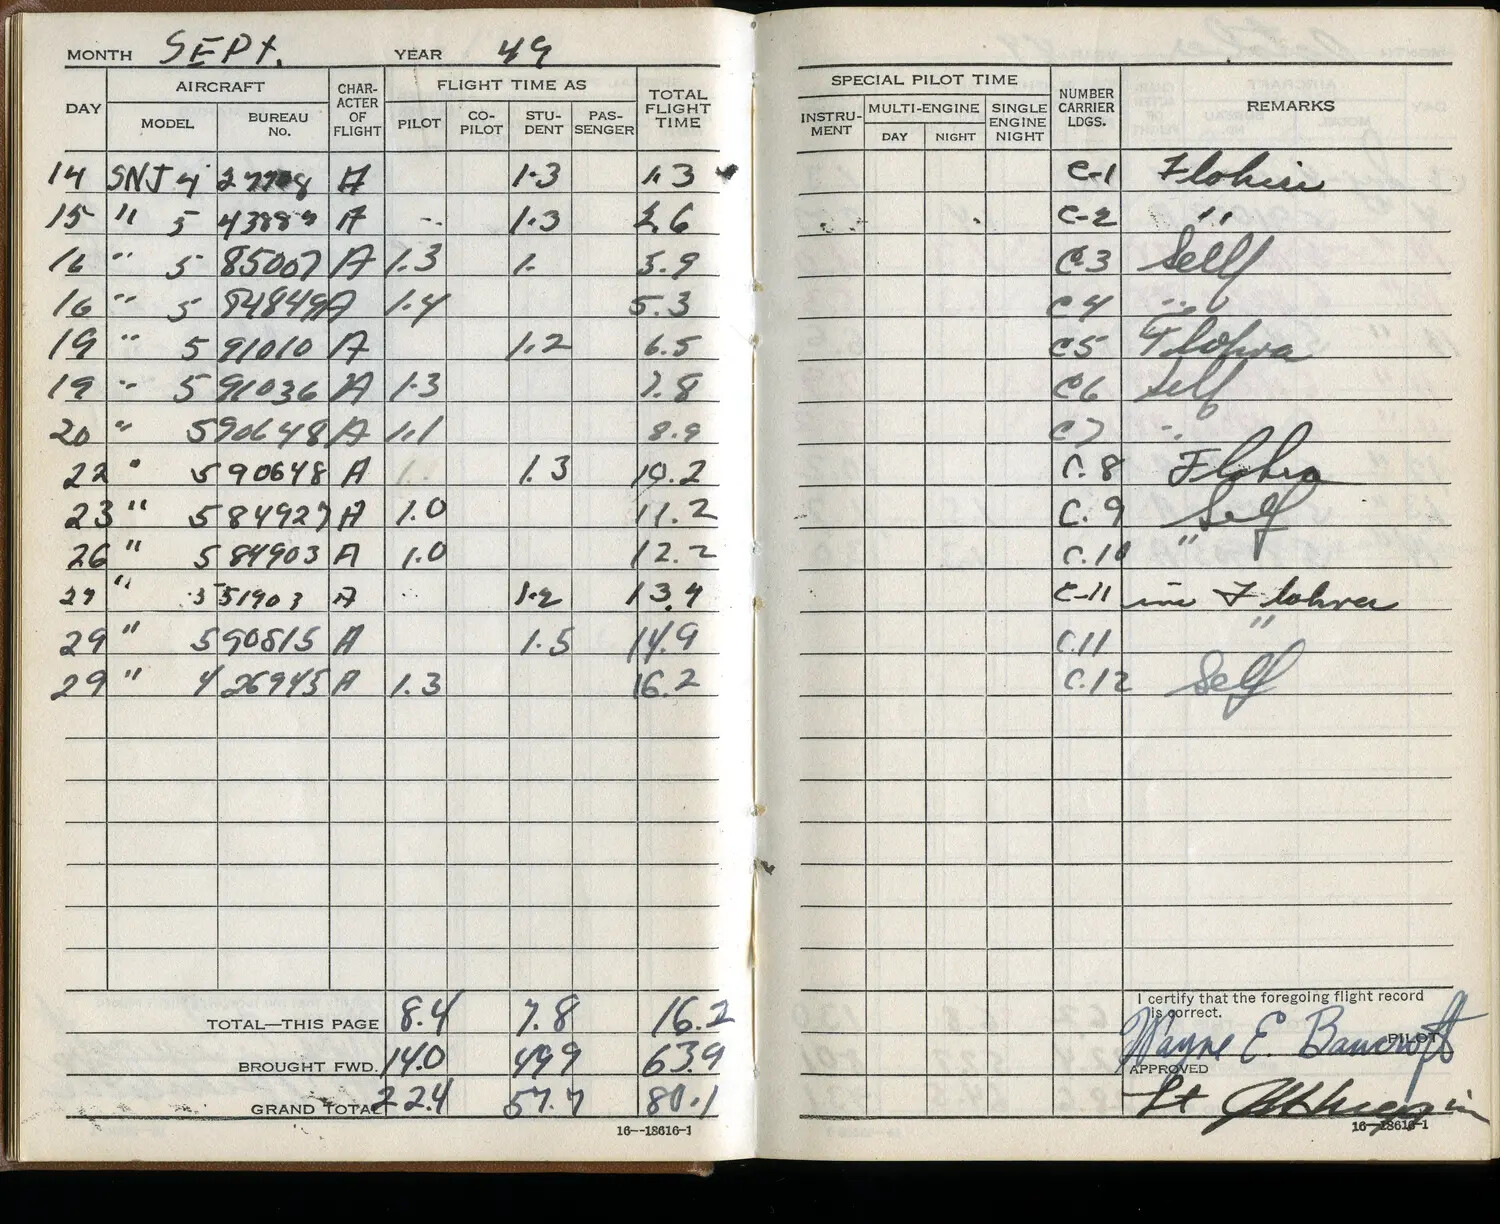 MONTH SEPT. YEAR 49
DAY AIRCRAFT MODEL BUREAU NO. CHARACTER OF FLIGHT FLIGHT TIME AS PILOT CO-PILOT STUDENT PASSENGER TOTAL FLIGHT TIME
14 SNJ 4 A 1.3 1.3
15 " 5 A 1.3 2.6
16 " 5 85007 A 1.3 1. 3.9
16 " 5 84849 A 1.4 5.3
19 " 5 91010 A 1.2 6.5
19 " 5 91036 A 1.3 7.8
20 " 5 90648 A 1.1 8.9
22 " 5 90648 A 1.3 10.2
23 " 5 84927 A 1.0 11.2
26 " 5 84903 A 1.0 12.2
27 " 5 51903 A 1.2 13.4
29 " 5 90815 A 1.5 14.9
29 " 4 26945 A 1.3 16.2
TOTAL—THIS PAGE 8.4 7.8 16.2
BROUGHT FWD. 14.0 49.9 63.9
GRAND TOTAL 22.4 57.7 80.1
16—18616-1
SPECIAL PILOT TIME INSTRUMENT MULTI-ENGINE DAY NIGHT SINGLE ENGINE NIGHT NUMBER CARRIER LDGS. REMARKS
C-1
C-2 "
C.3 Self
C4 "
C5
C6 Self
C7 "
C.8
C.9 Self
C.10 "
C-11
C.11 "
C.12 Self
I certify that the foregoing flight record
is correct.
Wayne E. Bancroft PILOT
APPROVED
Lt
16—18616-1